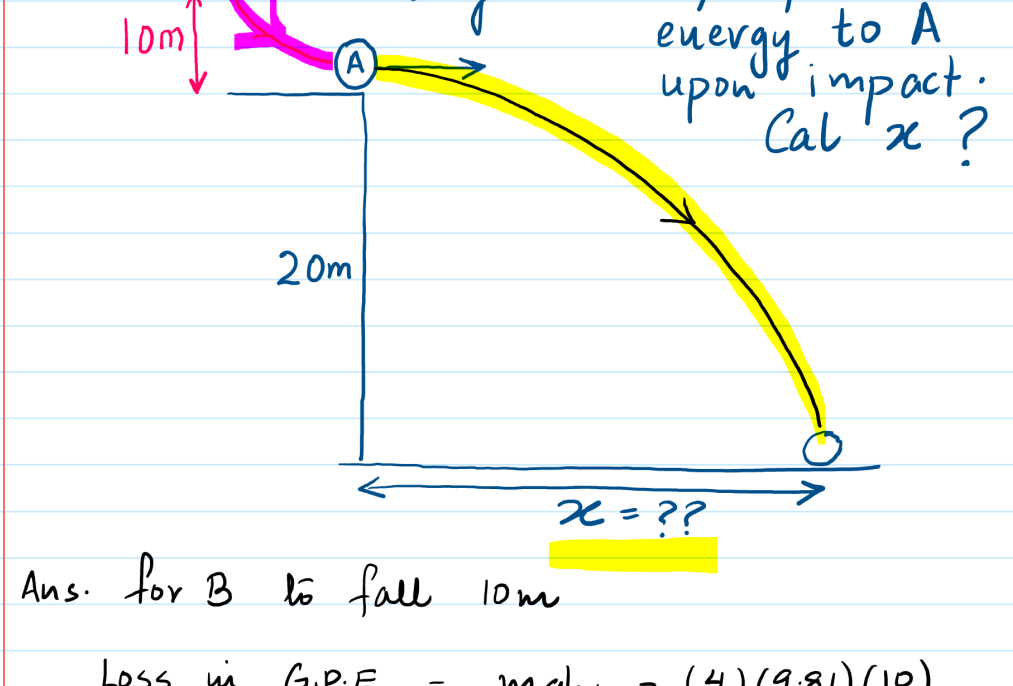 energy to A
10m
A
upon impact.
Cal x ?
20m
x = ??
Ans. for B to fall 10m
Loss in G.P.E = mgh = (4)(9.81)(10)